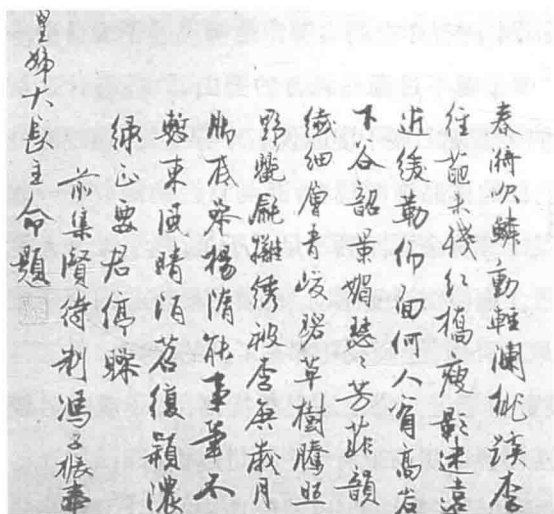 春漪吹鱗動輕瀾桃蹊李
徑葩未殘紅橋瘦影迷遠
近緩勒仰面何人看高岩
下谷韶景媚瑟瑟芳菲韻
纖細層青峻碧草樹騰照
野驪攤繡被李唐歲月
脚底參楊隋能事筆不
慙東風晴陌苔復穎濃
綠正要君停驂
前集賢待制馮子振奉
皇姊大長主命題